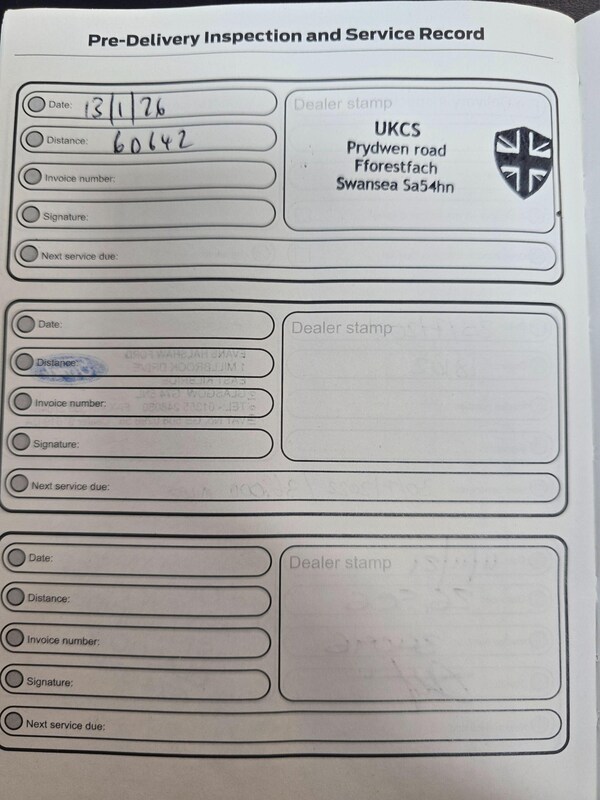 Pre-Delivery Inspection and Service Record
Date: 13/1/26
Distance: 60642
Invoice number:
Signature:
Next service due:
Dealer stamp
UKCS
Prydwen road
Fforestfach
Swansea Sa54hn
Date:
Distance:
Invoice number:
Signature:
Next service due:
Dealer stamp
Date:
Distance:
Invoice number:
Signature:
Next service due:
Dealer stamp